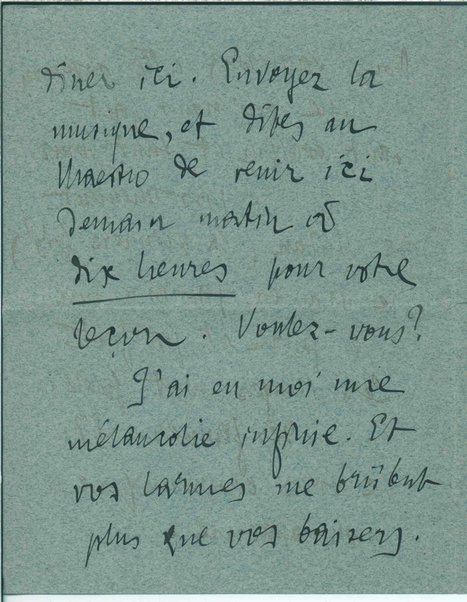 dîner ici. Envoyez la
musique, et dites au
Maestro de venir ici
demain matin à
dix heures pour votre
leçon. Voulez-vous?
J'ai en moi une
mélancolie infinie. Et
vos larmes me brûlent
plus que vos baisers.